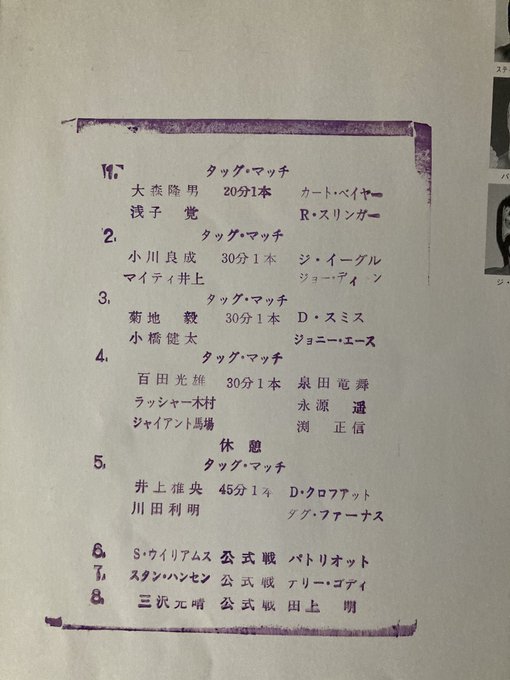 1. タッグ・マッチ
大森隆男 20分1本 カート・ベイヤー
浅子 覚 R・スリンガー
2. タッグ・マッチ
小川良成 30分1本 ジ・イーグル
マイティ井上 ジョー・ディートン
3. タッグ・マッチ
菊地 毅 30分1本 D・スミス
小橋健太 ジョニー・エース
4. タッグ・マッチ
百田光雄 30分1本 泉田竜舞
ラッシャー木村 永源 遥
ジャイアント馬場 渕 正信
休憩
5. タッグ・マッチ
井上雅央 45分1本 D・クロファット
川田利明 ダグ・ファーナス
6. S・ウイリアムス 公式戦 パトリオット
7. スタン・ハンセン 公式戦 テリー・ゴディ
8. 三沢光晴 公式戦 田上 明
ステ
バ
ジ・